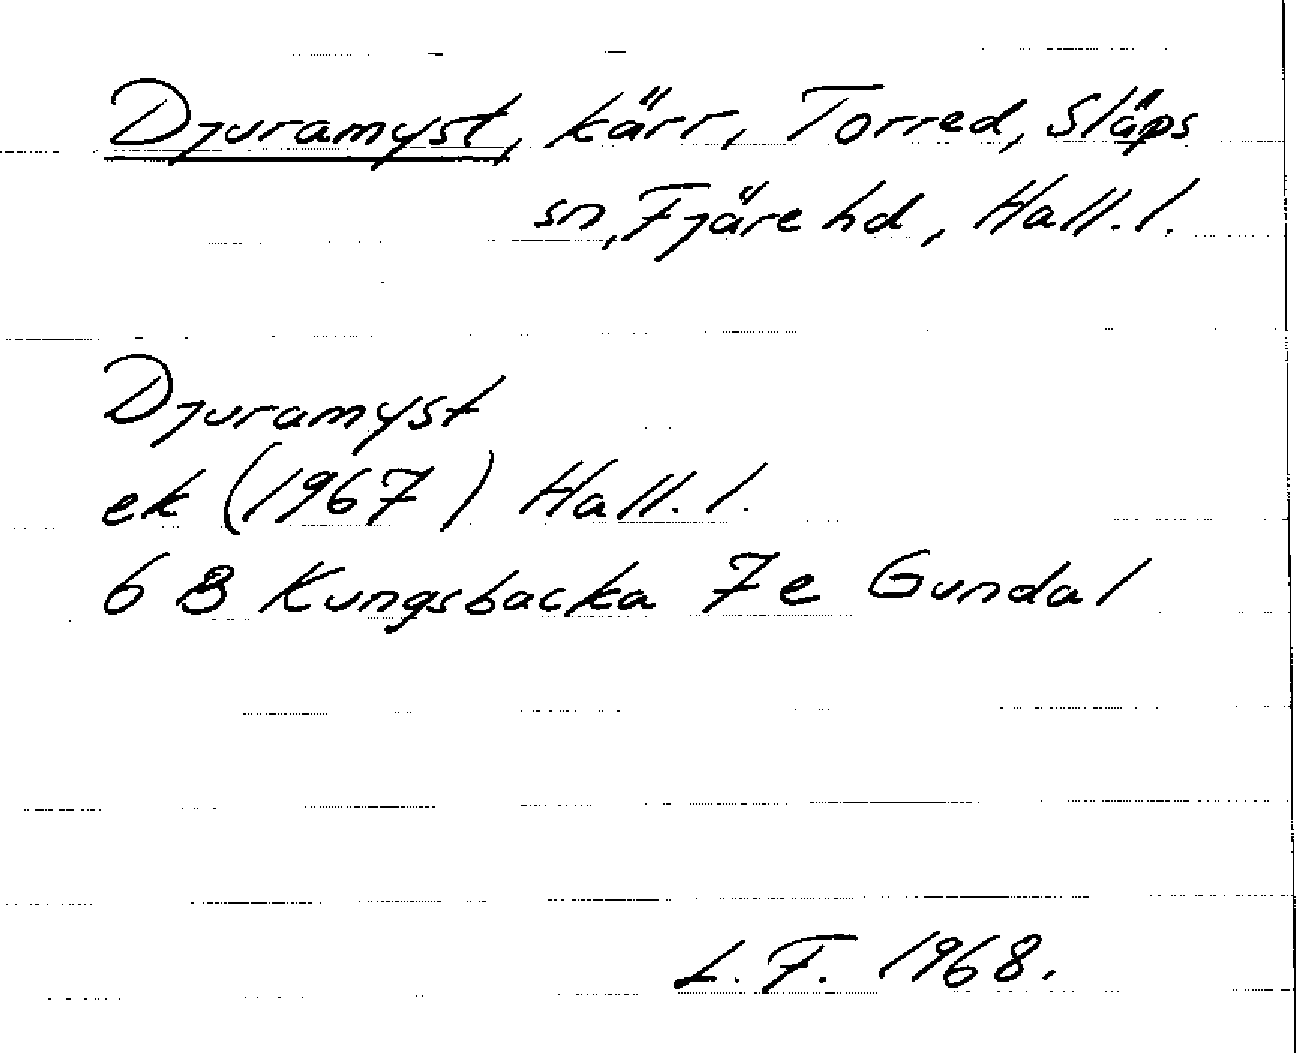 Djuramyst, kärr, Torred, Släps
sn, Fjäre hd, Hall. l.
Djuramyst
ek (1967) Hall. l.
6 B Kungsbacka 7e Gundal
L. F. 1968.